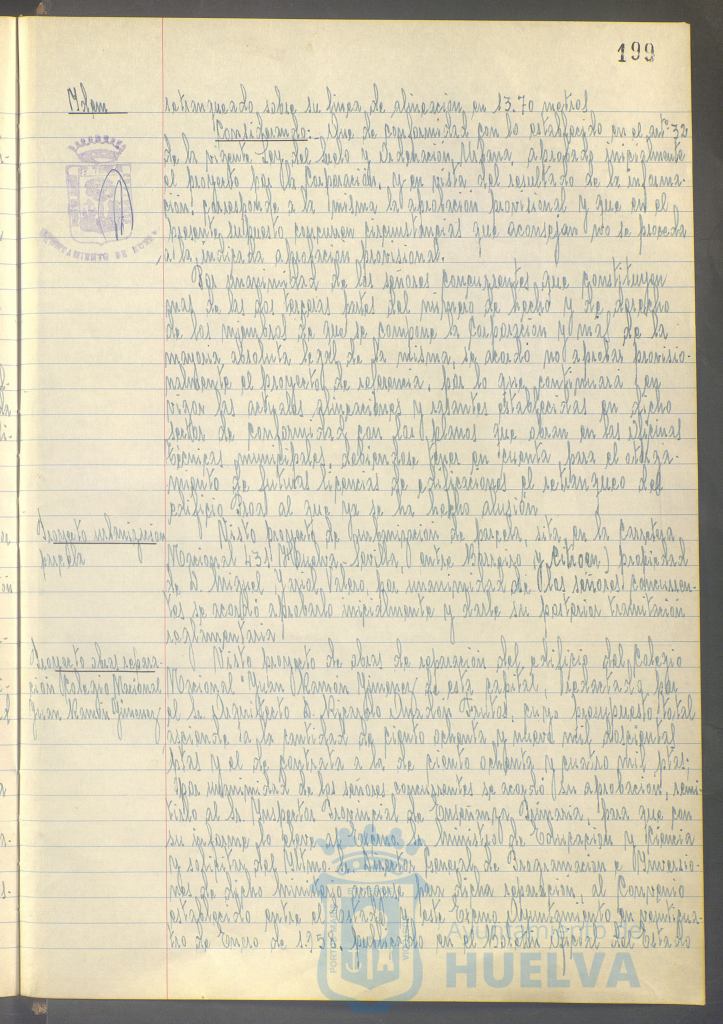 199
Idem
retranqueado sobre su línea de alineación en 13.70 metros.
Considerando: Que de conformidad con lo establecido en el artº 32
de la vigente Ley del Suelo y Ordenación Urbana, aprobado inicialmente
el proyecto por la Corporación, y en vista del resultado de la informa-
ción; corresponde a la misma la aprobación provisional y que en el
presente supuesto concurren circunstancias que aconsejan no se proceda
a la indicada aprobación provisional.
Por unanimidad de los señores concurrentes, que constituyen
mas de las dos terceras partes del número de hecho y de derecho
de los miembros de que se compone la Corporación y mas de la
mayoria absoluta legal de la misma, se acordó no aprobar provisio-
nalmente el proyecto de referencia, por lo que continuará en
vigor las actuales alineaciones y rasantes establecidas en dicho
sector de conformidad con los planos que obran en las Oficinas
técnicas municipales, debiendose tener en cuenta para el otorga-
miento de futuras licencias de edificaciones el retranqueo del
edificio al que ya se ha hecho alusión.
Proyecto urbanización
parcela
Visto proyecto de urbanización de parcela, sita en la Carretera
Nacional 431 Huelva-Sevilla, entre Barreiro y Citroen, propiedad
de D. Miguel Valero, por unanimidad de los señores concurren-
tes se acordó aprobarlo inicialmente y darle su posterior tramitación
reglamentaria.
Proyecto obras repara-
ción Colegio Nacional
Juan Ramón Jimenez
Visto proyecto de obras de reparación del edificio del Colegio
Nacional "Juan Ramon Jimenez" de esta capital, redactado por
el Sr. Arquitecto D. Ricardo Anadon Frutos, cuyo presupuesto total
asciende a la cantidad de ciento ochenta y nueve mil doscientas
ptas y el de contrata a la de ciento ochenta y cuatro mil ptas;
por unanimidad de los señores concurrentes se acordó su aprobación, remi-
tirlo al Sr. Inspector Provincial de Enseñanza Primaria, para que con
su informe lo eleve al Excmo. Sr. Ministro de Educación y Ciencia
y solicitar del Iltmo. Sr. Director General de Programación e Inversio-
nes de dicho ministerio acogerse para dicha reparación, al Convenio
establecido entre el Estado y este Excmo Ayuntamiento en venticua-
tro de Enero de 1958, publicado en el Boletín Oficial del Estado
Ayuntamiento de
HUELVA